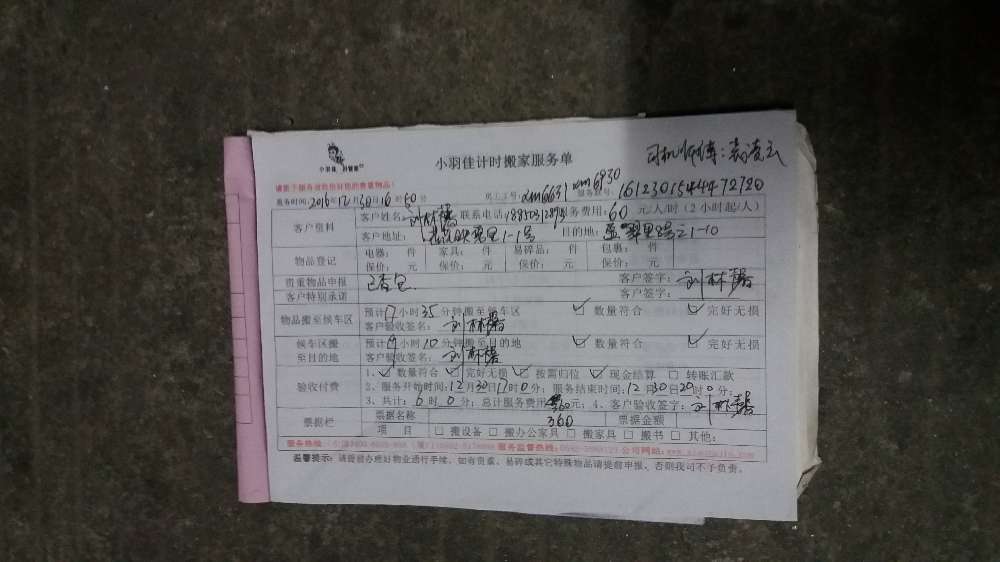 小羽佳计时搬家服务单
司机师傅：
请要于服务前收拾好您的贵重物品！
服务时间：2016年12月30日16时50分 员工工号：xm6631 xm6830 服务单号：1612301544472720
客户资料 客户姓名：刘林 联系电话 服务费用：60 元/人/时（2小时起/人）
客户地址：里1-1号 目的地：
物品登记 电器： 件 家具： 件 易碎品： 件 包裹： 件
保价： 元 保价： 元 保价： 元 保价： 元
贵重物品申报 已查包 客户签字：刘林
客户特别承诺 客户签字：
物品搬至候车区 预计17小时35分钟搬至候车区 ✓ 数量符合 ✓ 完好无损
客户验收签名：刘林
候车区搬至目的地 预计 小时10分钟搬至目的地 ✓ 数量符合 ✓ 完好无损
客户验收签名：刘林
验收付费 1、✓ 数量符合 ✓ 完好无损 ✓ 按需归位 ✓ 现金结算 □ 转账汇款
2、服务开始时间：12月30日17时0分；服务结束时间：12月30日20时0分；
3、共计：6时0分；总计服务费用 360元；4、客户验收签字：刘林
票据栏 票据名称 360 票据金额
项目 □ 搬设备 □ 搬办公家具 □ 搬家具 □ 搬书 □ 其他：
服务热线： 服务监督热线： 公司网站：
温馨提示：请提前办理好物业通行手续，如有贵重、易碎或其它特殊物品请提前申报，否则我司不予负责。